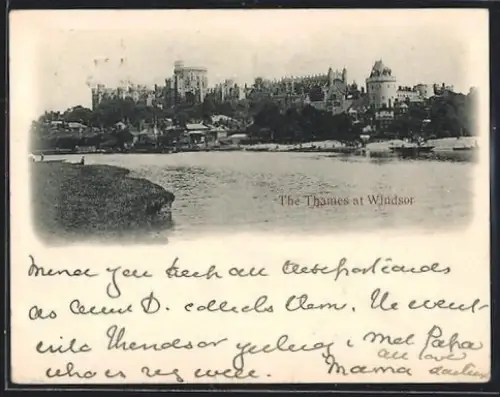 The Thames at Windsor
Mind you keep all these postcards
as Aunt D. collects them. We went
into Windsor yesterday & met Papa
who is very well.
all love
Mama darling